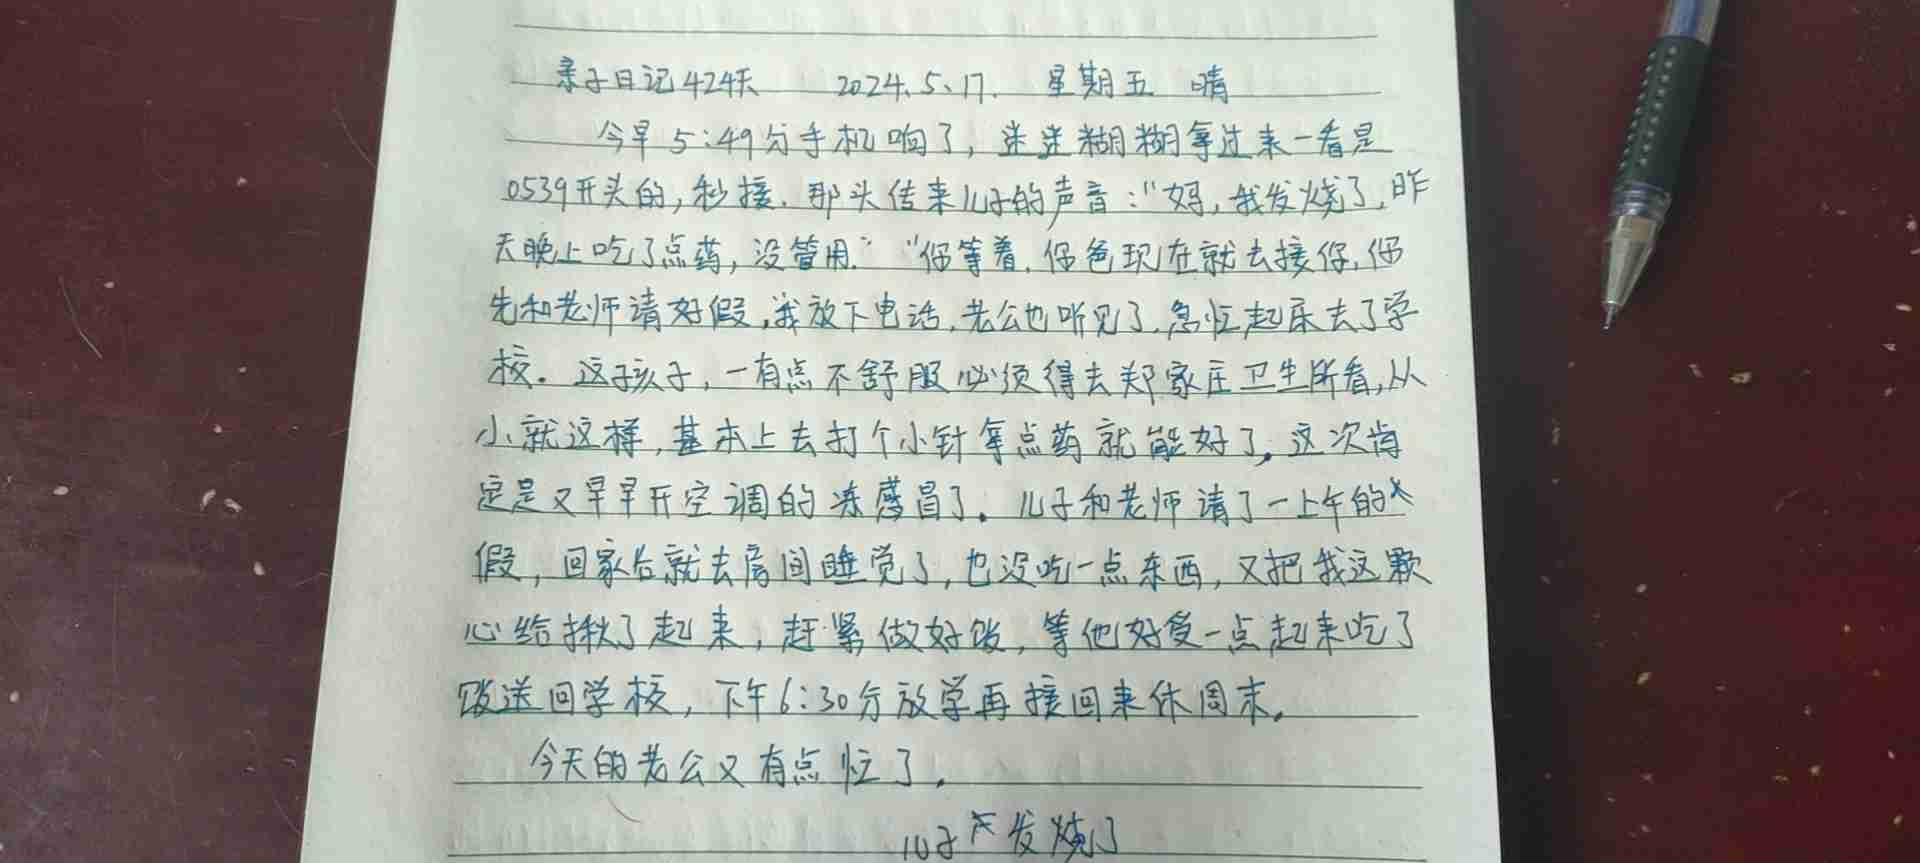 亲子日记424天 2024.5.17. 星期五 晴
今早5:49分手机响了,迷迷糊糊拿过来一看是
0539开头的,秒接.那头传来儿子的声音:"妈,我发烧了,昨
天晚上吃了点药,没管用.""你等着,你爸现在就去接你,你
先和老师请好假,我放下电话,老公也听见了,急忙起床去了学
校.这孩子,一有点不舒服必须得去郑家庄卫生所看,从
小就这样,基本上去打个小针拿点药就能好了,这次肯
定是又早早开空调的冻感冒了.儿子和老师请了一上午的
假,回家后就去房间睡觉了,也没吃一点东西,又把我这颗
心给揪了起来,赶紧做好饭,等他好受一点起来吃了
饭送回学校,下午6:30分放学再接回来休周末.
今天的老公又有点忙了.
儿子发烧了